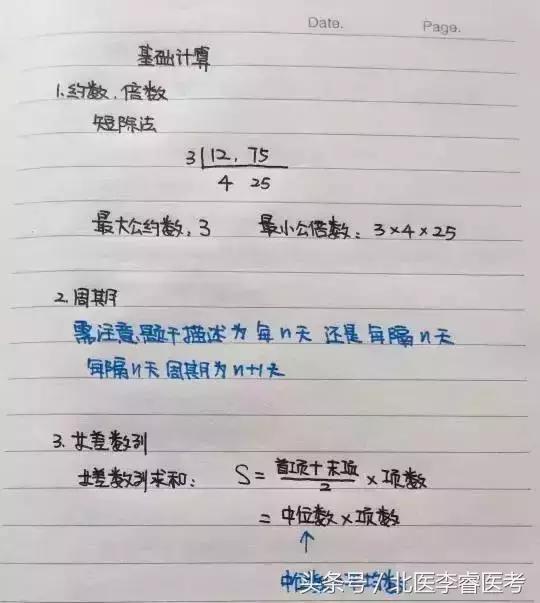 Date.
Page.
基础计算
1.约数、倍数
短除法
3 12, 75
4 25
最大公约数:3 最小公倍数:3×4×25
2.周期
需注意题干描述为每n天 还是每隔n天
每隔n天周期为n+1天
3.等差数列
等差数列求和: S=首项+末项/2×项数
=中位数×项数
↑
头条号/北医李睿医考